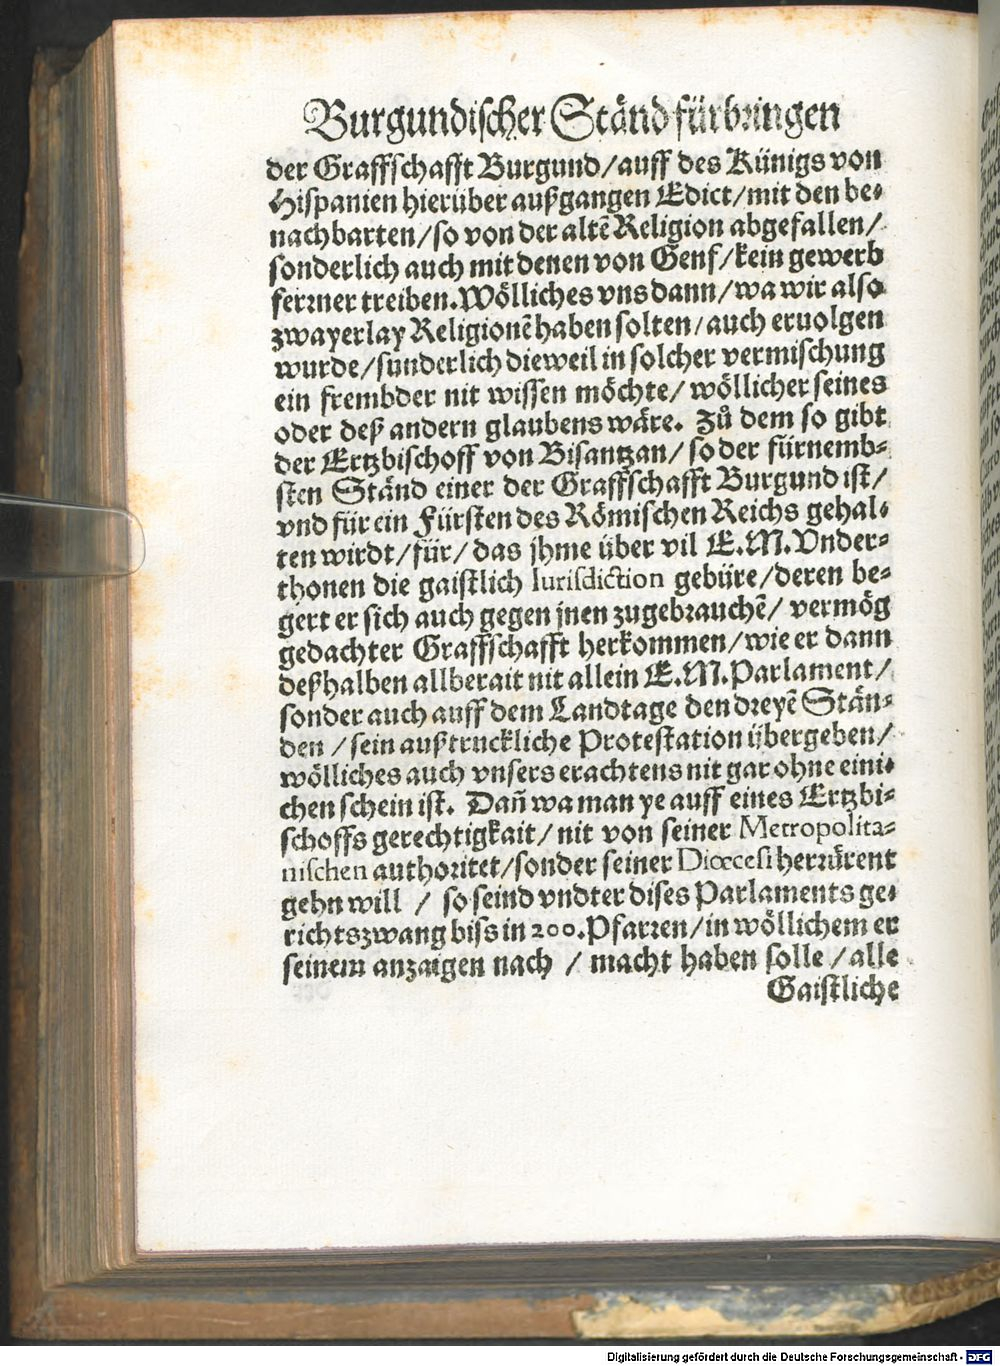 Burgundischer Ständ fürbringen
der Graffschafft Burgund/auff des Künigs von
Hispanien hierüber außgangen Edict/mit den be-
nachbarten/so von der altē Religion abgefallen/
sonderlich auch mit denen von Genf/kein gewerb
ferrner treiben. Wölliches vns dann/wa wir also
zwayerlay Religionē haben solten/auch eruolgen
wurde/sunderlich dieweil in solcher vermischung
ein frembder nit wissen möchte/ wöllicher seines
oder deß andern glaubens wäre. Zů dem so gibt
der Ertzbischoff von Bisantzan/ so der fürnemb-
sten Ständ einer der Graffschafft Burgund ist/
vnd für ein Fürsten des Römischen Reichs gehal-
ten wirdt/für/ das jhme über vil E.M. Vnder-
thonen die gaistlich Iurisdiction gebüre/deren be-
gert er sich auch gegen jnen zugebrauchē/ vermög
gedachter Graffschafft herkommen/wie er dann
deßhalben allberait nit allein E.M. Parlament/
sonder auch auff dem Landtage den dreyē Stän-
den / sein außtruckliche Protestation übergeben/
wölliches auch vnsers erachtens nit gar ohne eini-
chen schein ist. Dañ wa man ye auff eines Ertzbi-
schoffs gerechtigkait/ nit von seiner Metropolita-
nischen authoritet/sonder seiner Diœcesi herrürent
gehn will / so seind vndter dises Parlaments ge-
richtszwang biss in 200. Pfarren/in wöllichem er
seinem anzaigen nach / macht haben solle / alle
Gaistliche
Digitalisierung gefördert durch die Deutsche Forschungsgemeinschaft - DFG